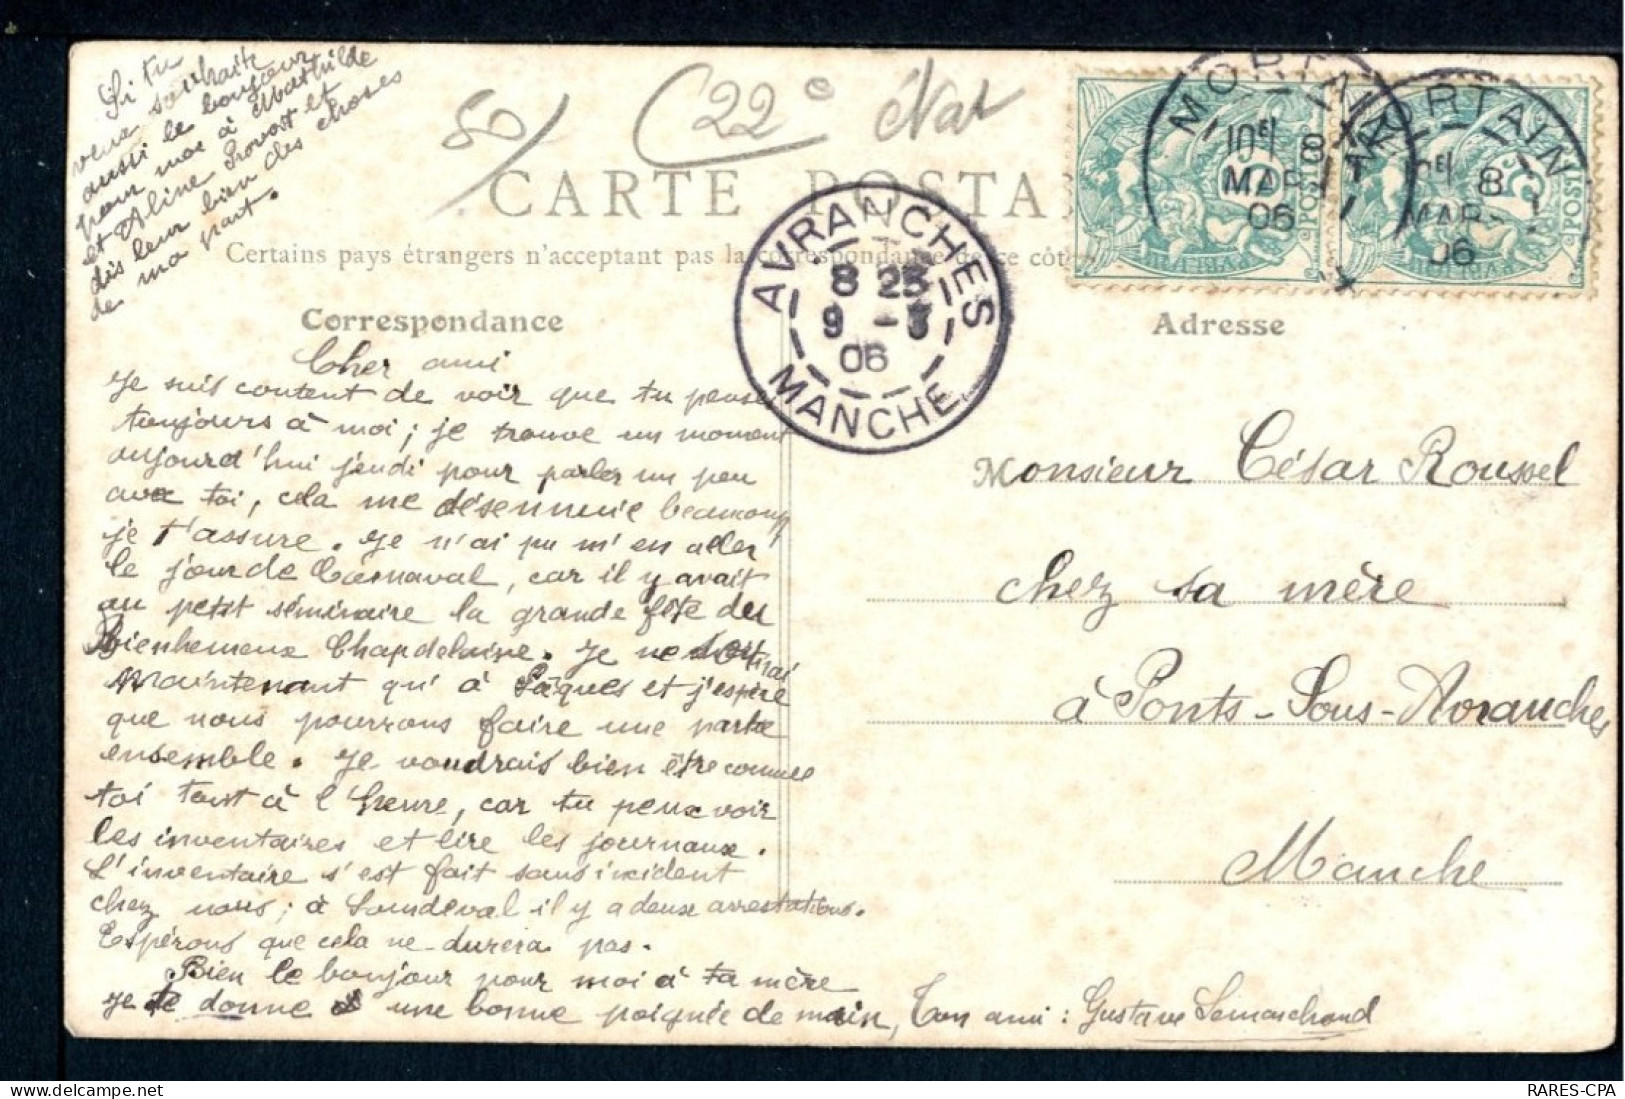 Si tu
veux souhaite
aussi le bonjour
pour moi à Mathilde
et Aline Provost et
dis leur bien des choses
de ma part.
80/
22e
CARTE POSTA
Certains pays étrangers n'acceptent pas la correspondance de ce côté
MORTAIN
10E 8
MAR
06
MORTAIN
8
MAR
06
POSTES
AVRANCHES
8 25
9 -3
06
MANCHE
Correspondance
Adresse
Cher ami
Je suis content de voir que tu penses
toujours à moi ; je trouve un moment
aujourd'hui jeudi pour parler un peu
avec toi, cela me désennuie beaucoup
je t'assure. Je n'ai pu m'en aller
le jour de Carnaval, car il y avait
au petit séminaire la grande fête du
Bienheureux Chapdelaine. Je ne sortirai
maintenant qu'à Pâques et j'espère
que nous pourrons faire une partie
ensemble. Je voudrais bien être comme
toi tout à l'heure, car tu peux voir
les inventaires et lire les journaux.
L'inventaire s'est fait sans incident
chez nous ; à Sourdeval il y a deux arrestations.
Espérons que cela ne durera pas.
Bien le bonjour pour moi à ta mère
Je te donne une bonne poignée de main, Ton ami : Gustave Lemarchand
Monsieur César Roussel
chez sa mère
à Ponts-Sous-Avranches
Manche
RARES-CPA